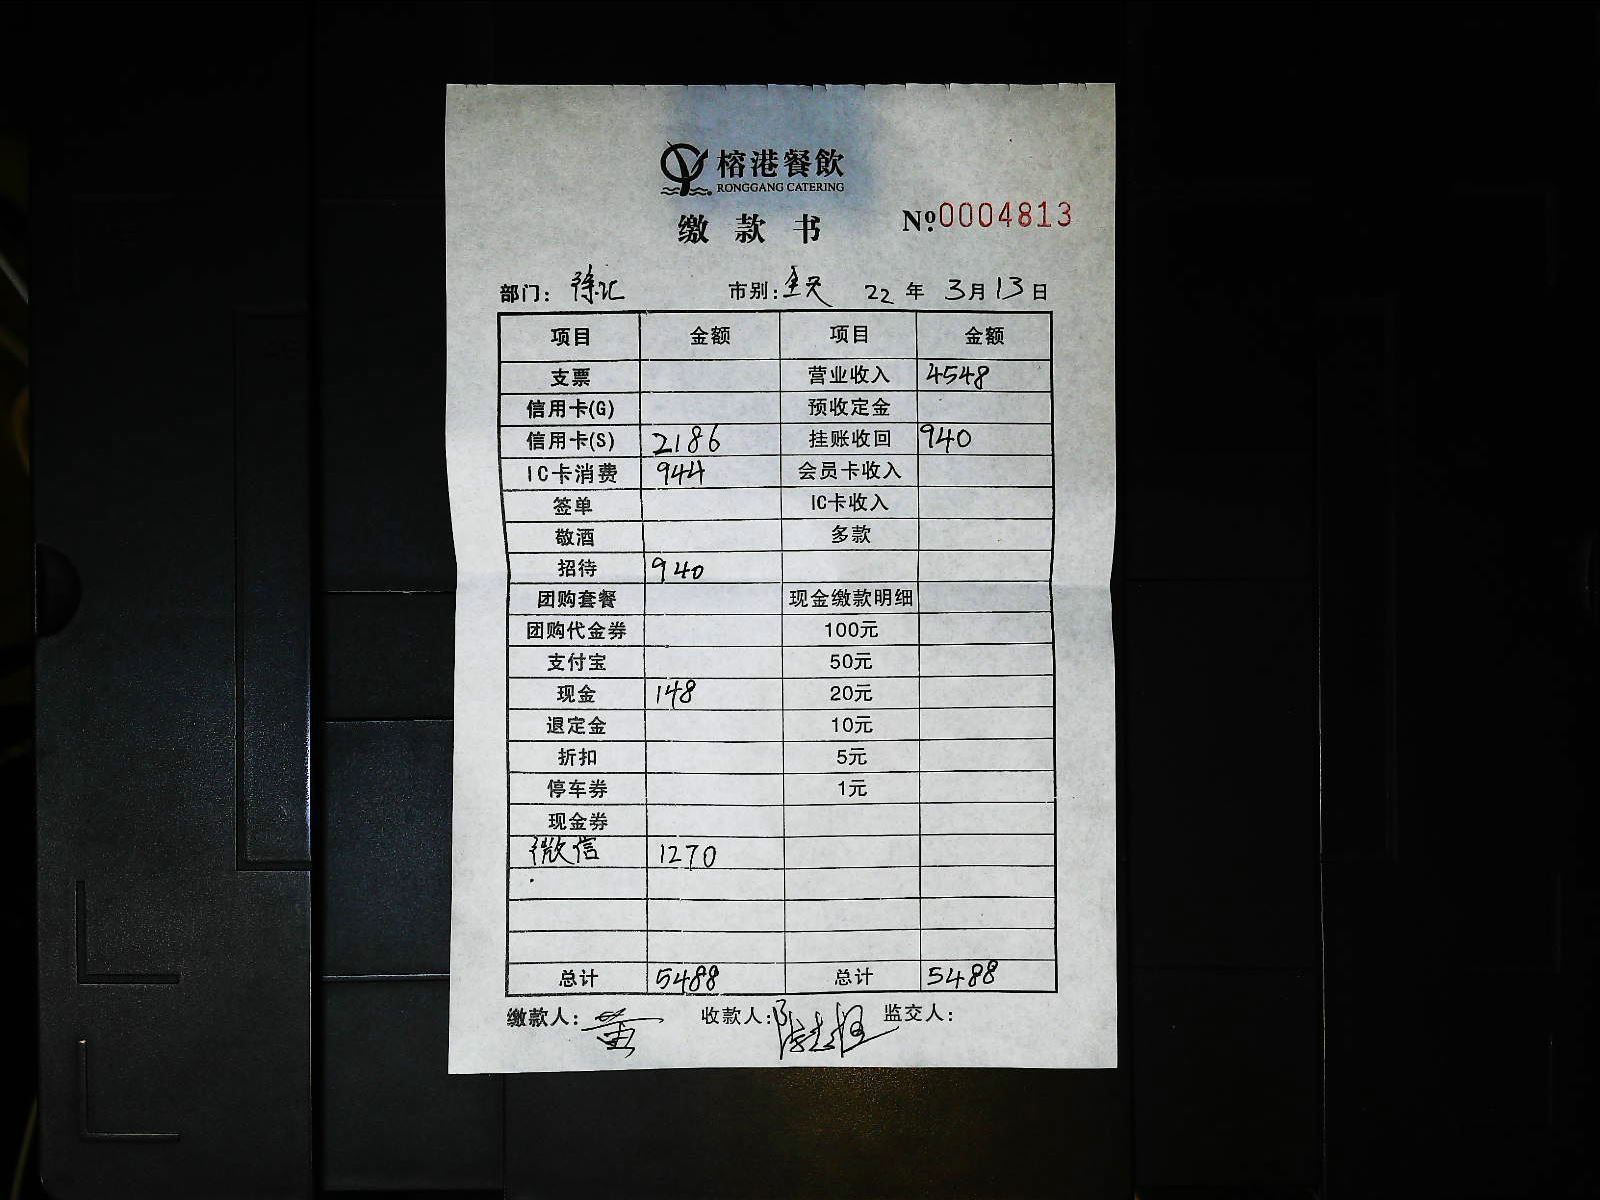 榕港餐飲
RONGGANG CATERING
缴款书 №0004813
部门: 徐汇 市别: 全天 22年 3月13日
项目 金额 项目 金额
支票 营业收入 4548
信用卡(G) 预收定金
信用卡(S) 2186 挂账收回 940
IC卡消费 944 会员卡收入
签单 IC卡收入
敬酒 多款
招待 940
团购套餐 现金缴款明细
团购代金券 100元
支付宝 50元
现金 148 20元
退定金 10元
折扣 5元
停车券 1元
现金券
微信 1270
总计 5488 总计 5488
缴款人: 收款人: 监交人: